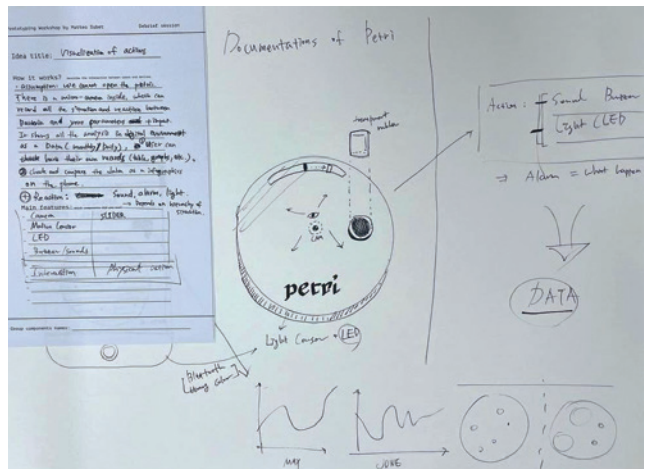 Prototyping Workshop by Matteo Subet
Debrief session
Idea title: Visualization of actions
How it works?
- Assumption: We cannot open the petri.
There is a micro-camera inside, which can
record all the situation and reaction between
Bacteria and your parameter input.
It shows all the analysis in digital environment
as a Data (monthly/Daily), User can
check back their own records (table, graphs, etc.).
check and compare the data as a infographics
on the phone.
+ Reaction: Sound, alarm, light.
→ Depends on hierarchy of situation.
Main features:
Camera SLIDER
Motion Censor
LED
Button/sounds
Interaction Physical action
Group components names:
Documentations of Petri
transparent
CAM
petri
Light Censor + LED
Bluetooth
MAY
JUNE
Action: Sound Buzzer
Light (LED
→ Alarm = what happen
DATA